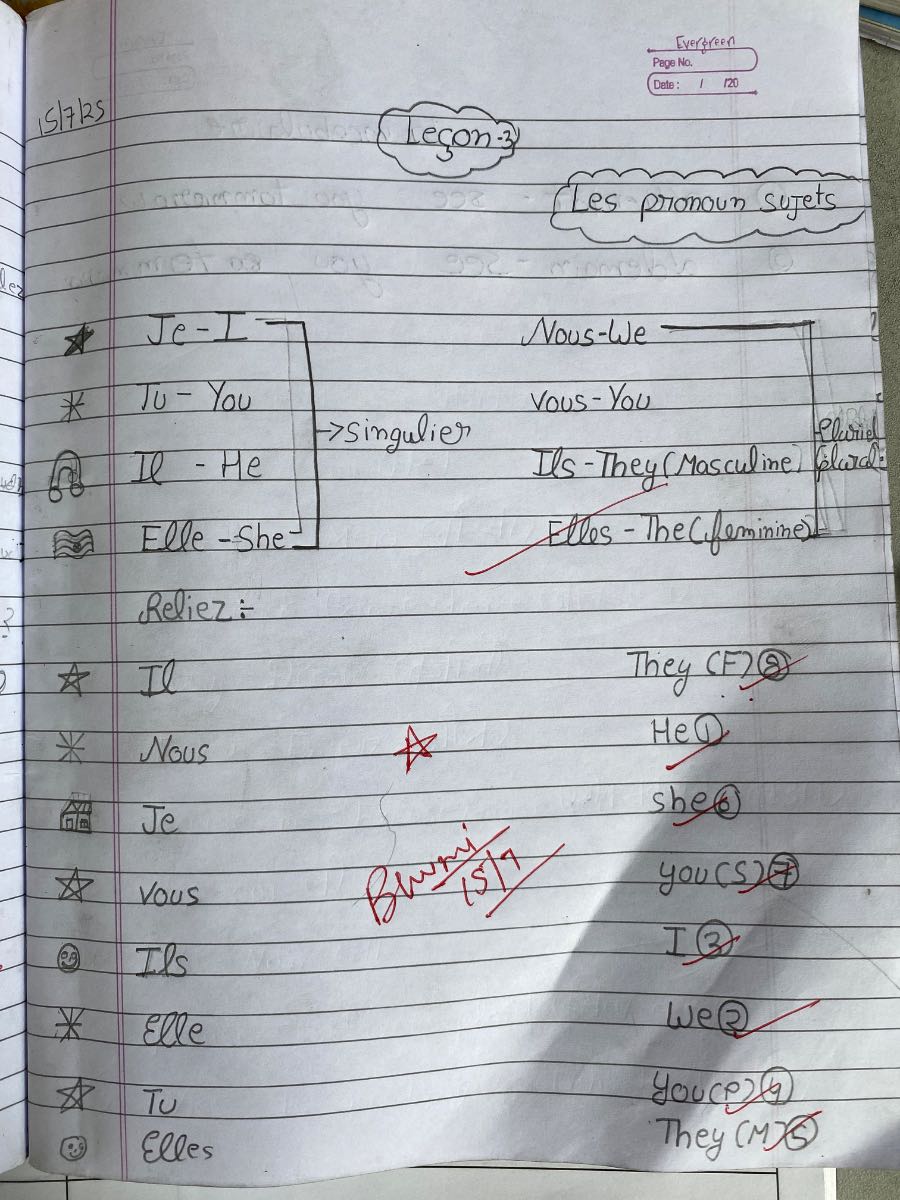 Evergreen
Page No.
Date : / /20
15/7/25
Leçon-3
Les pronoun sujets
Je - I
Nous-We
Tu - You
vous-You
→Singulier
Pluriel
Il - He
Ils-They(Masculine)
plural:
Elle -She
Elles -The(feminine)
Reliez:-
Il They (F) 8
Nous He 1
Je she 6
Bhumi
15/7
vous you(S) 7
Ils I 3
Elle We 2
Tu You(P) 4
Elles They (M) 5